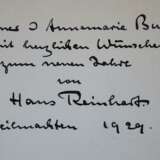 J Annemarie
mit herzlichen Wünschen
zum neuen Jahre
von
Hans Reinhart
Weihnachten 1929.